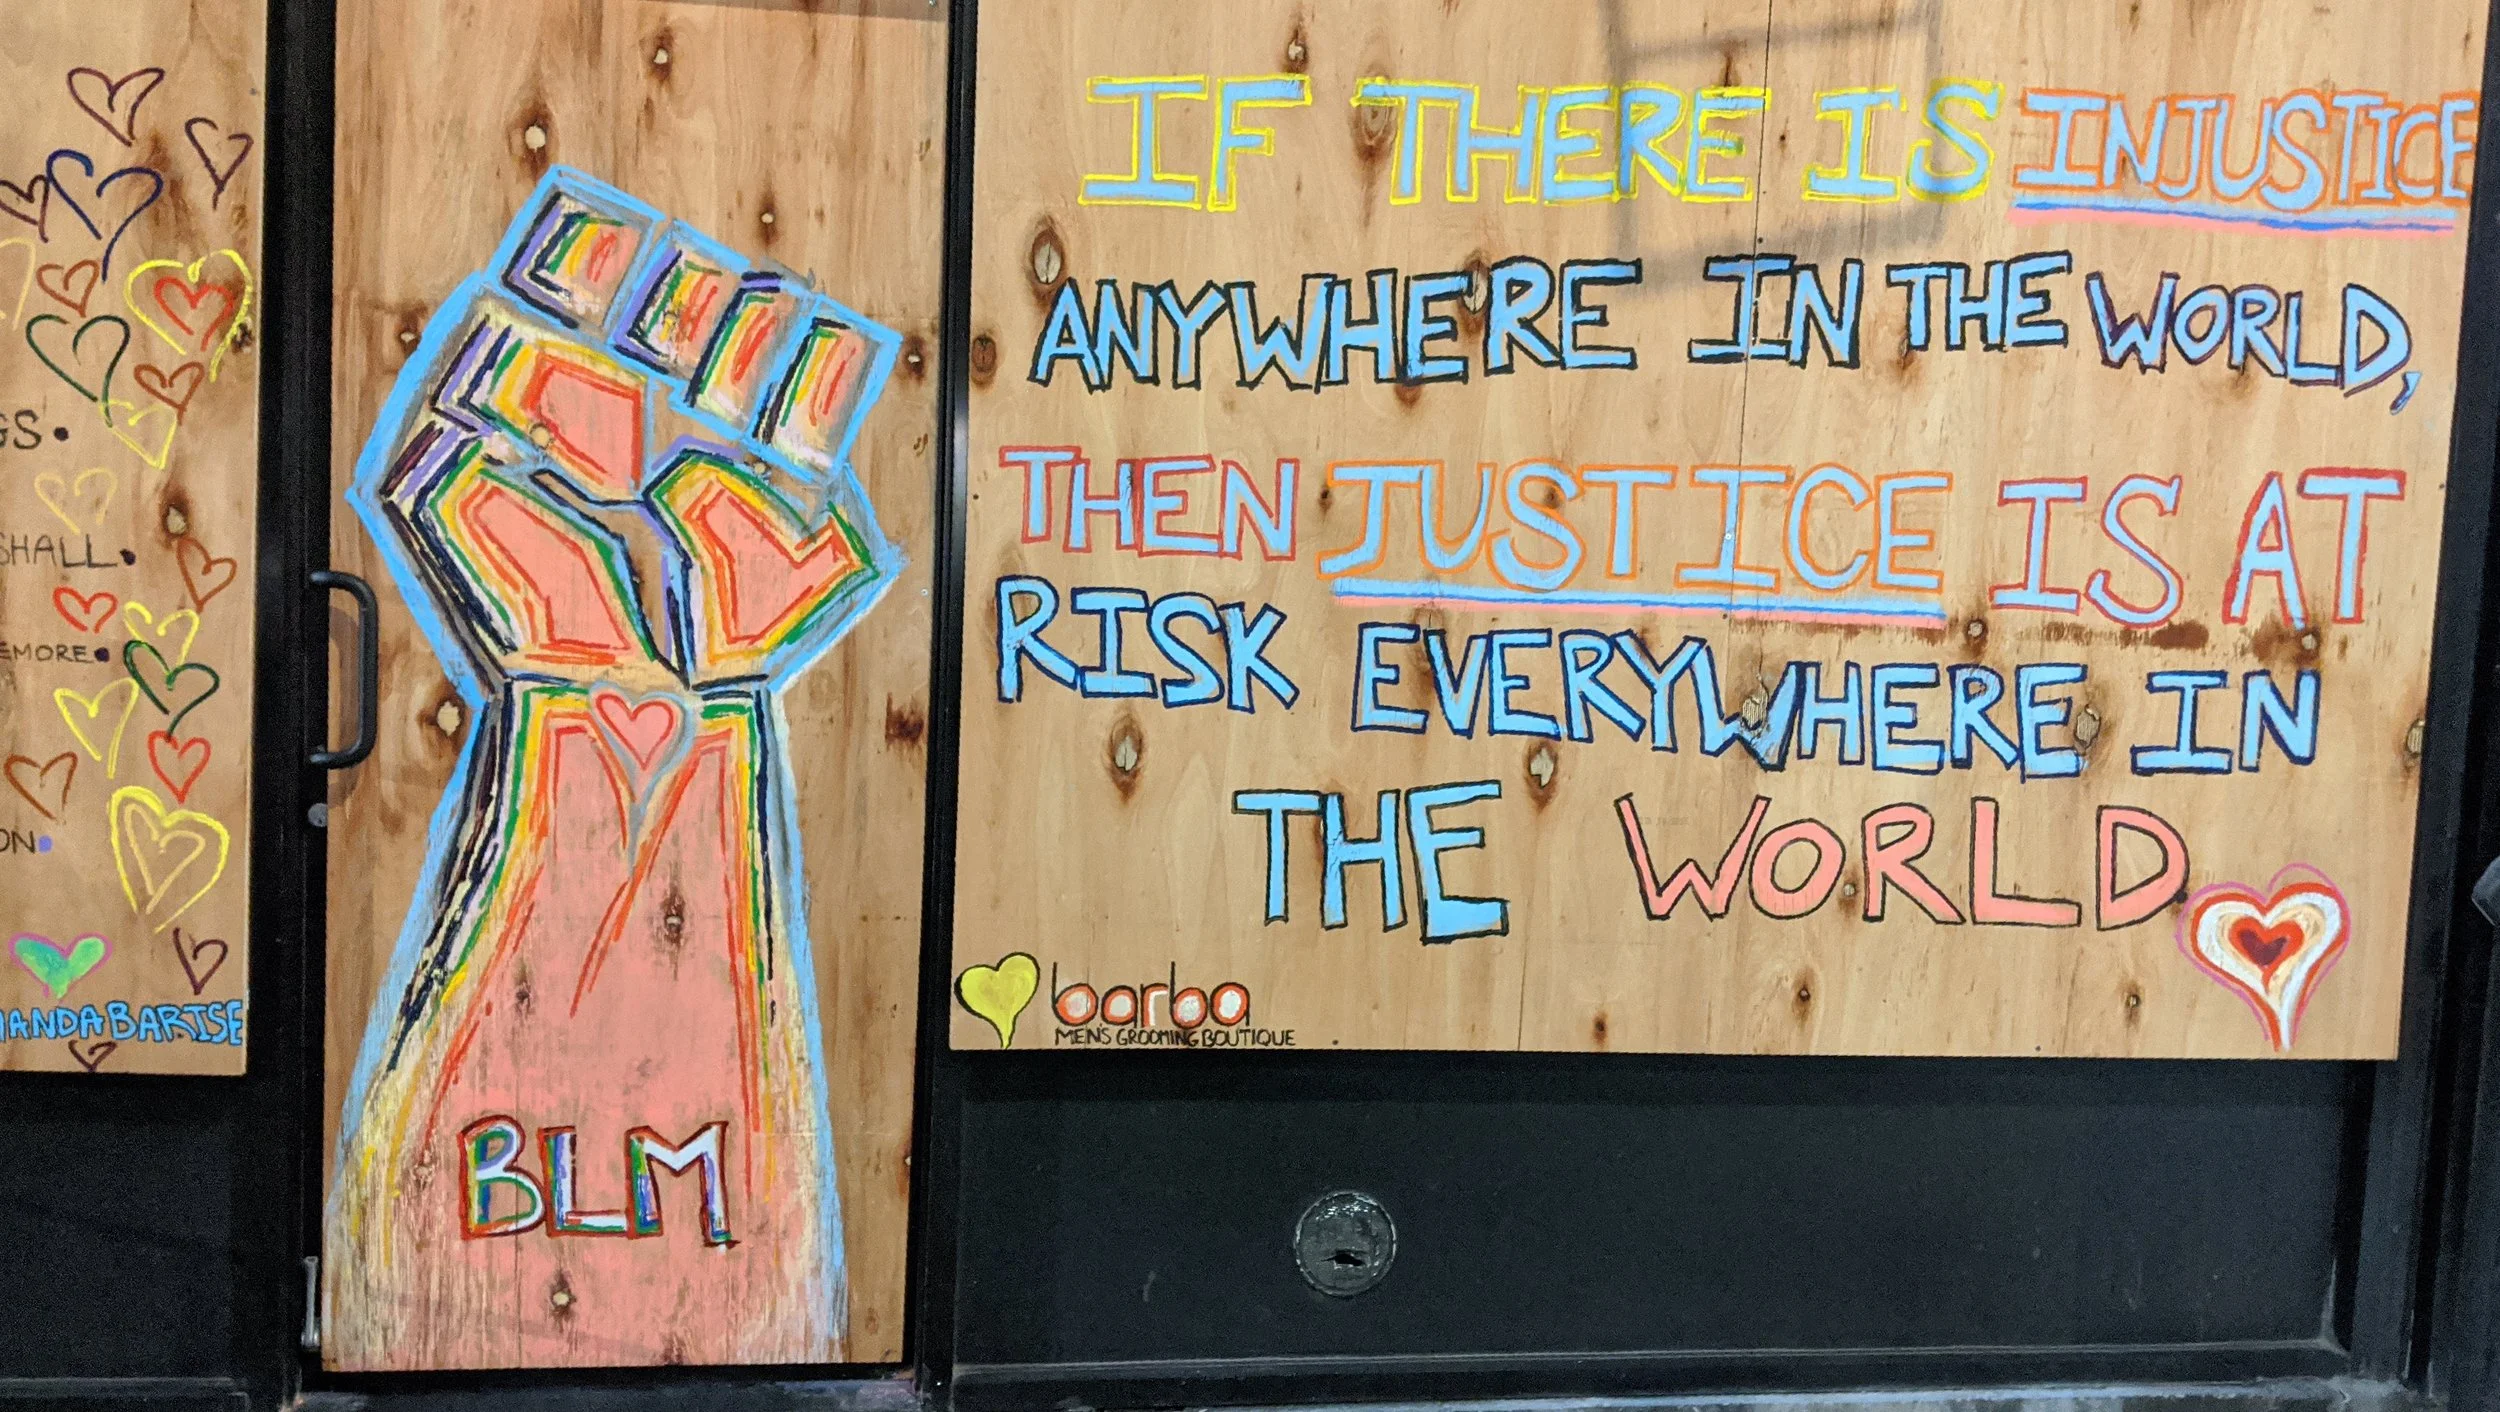 GS.
SHALL.
EMORE.
ON.
MANDA BARISE
BLM
IF THERE IS INJUSTICE
ANYWHERE IN THE WORLD,
THEN JUSTICE IS AT
RISK EVERYWHERE IN
THE WORLD
barba
MEN'S GROOMING BOUTIQUE